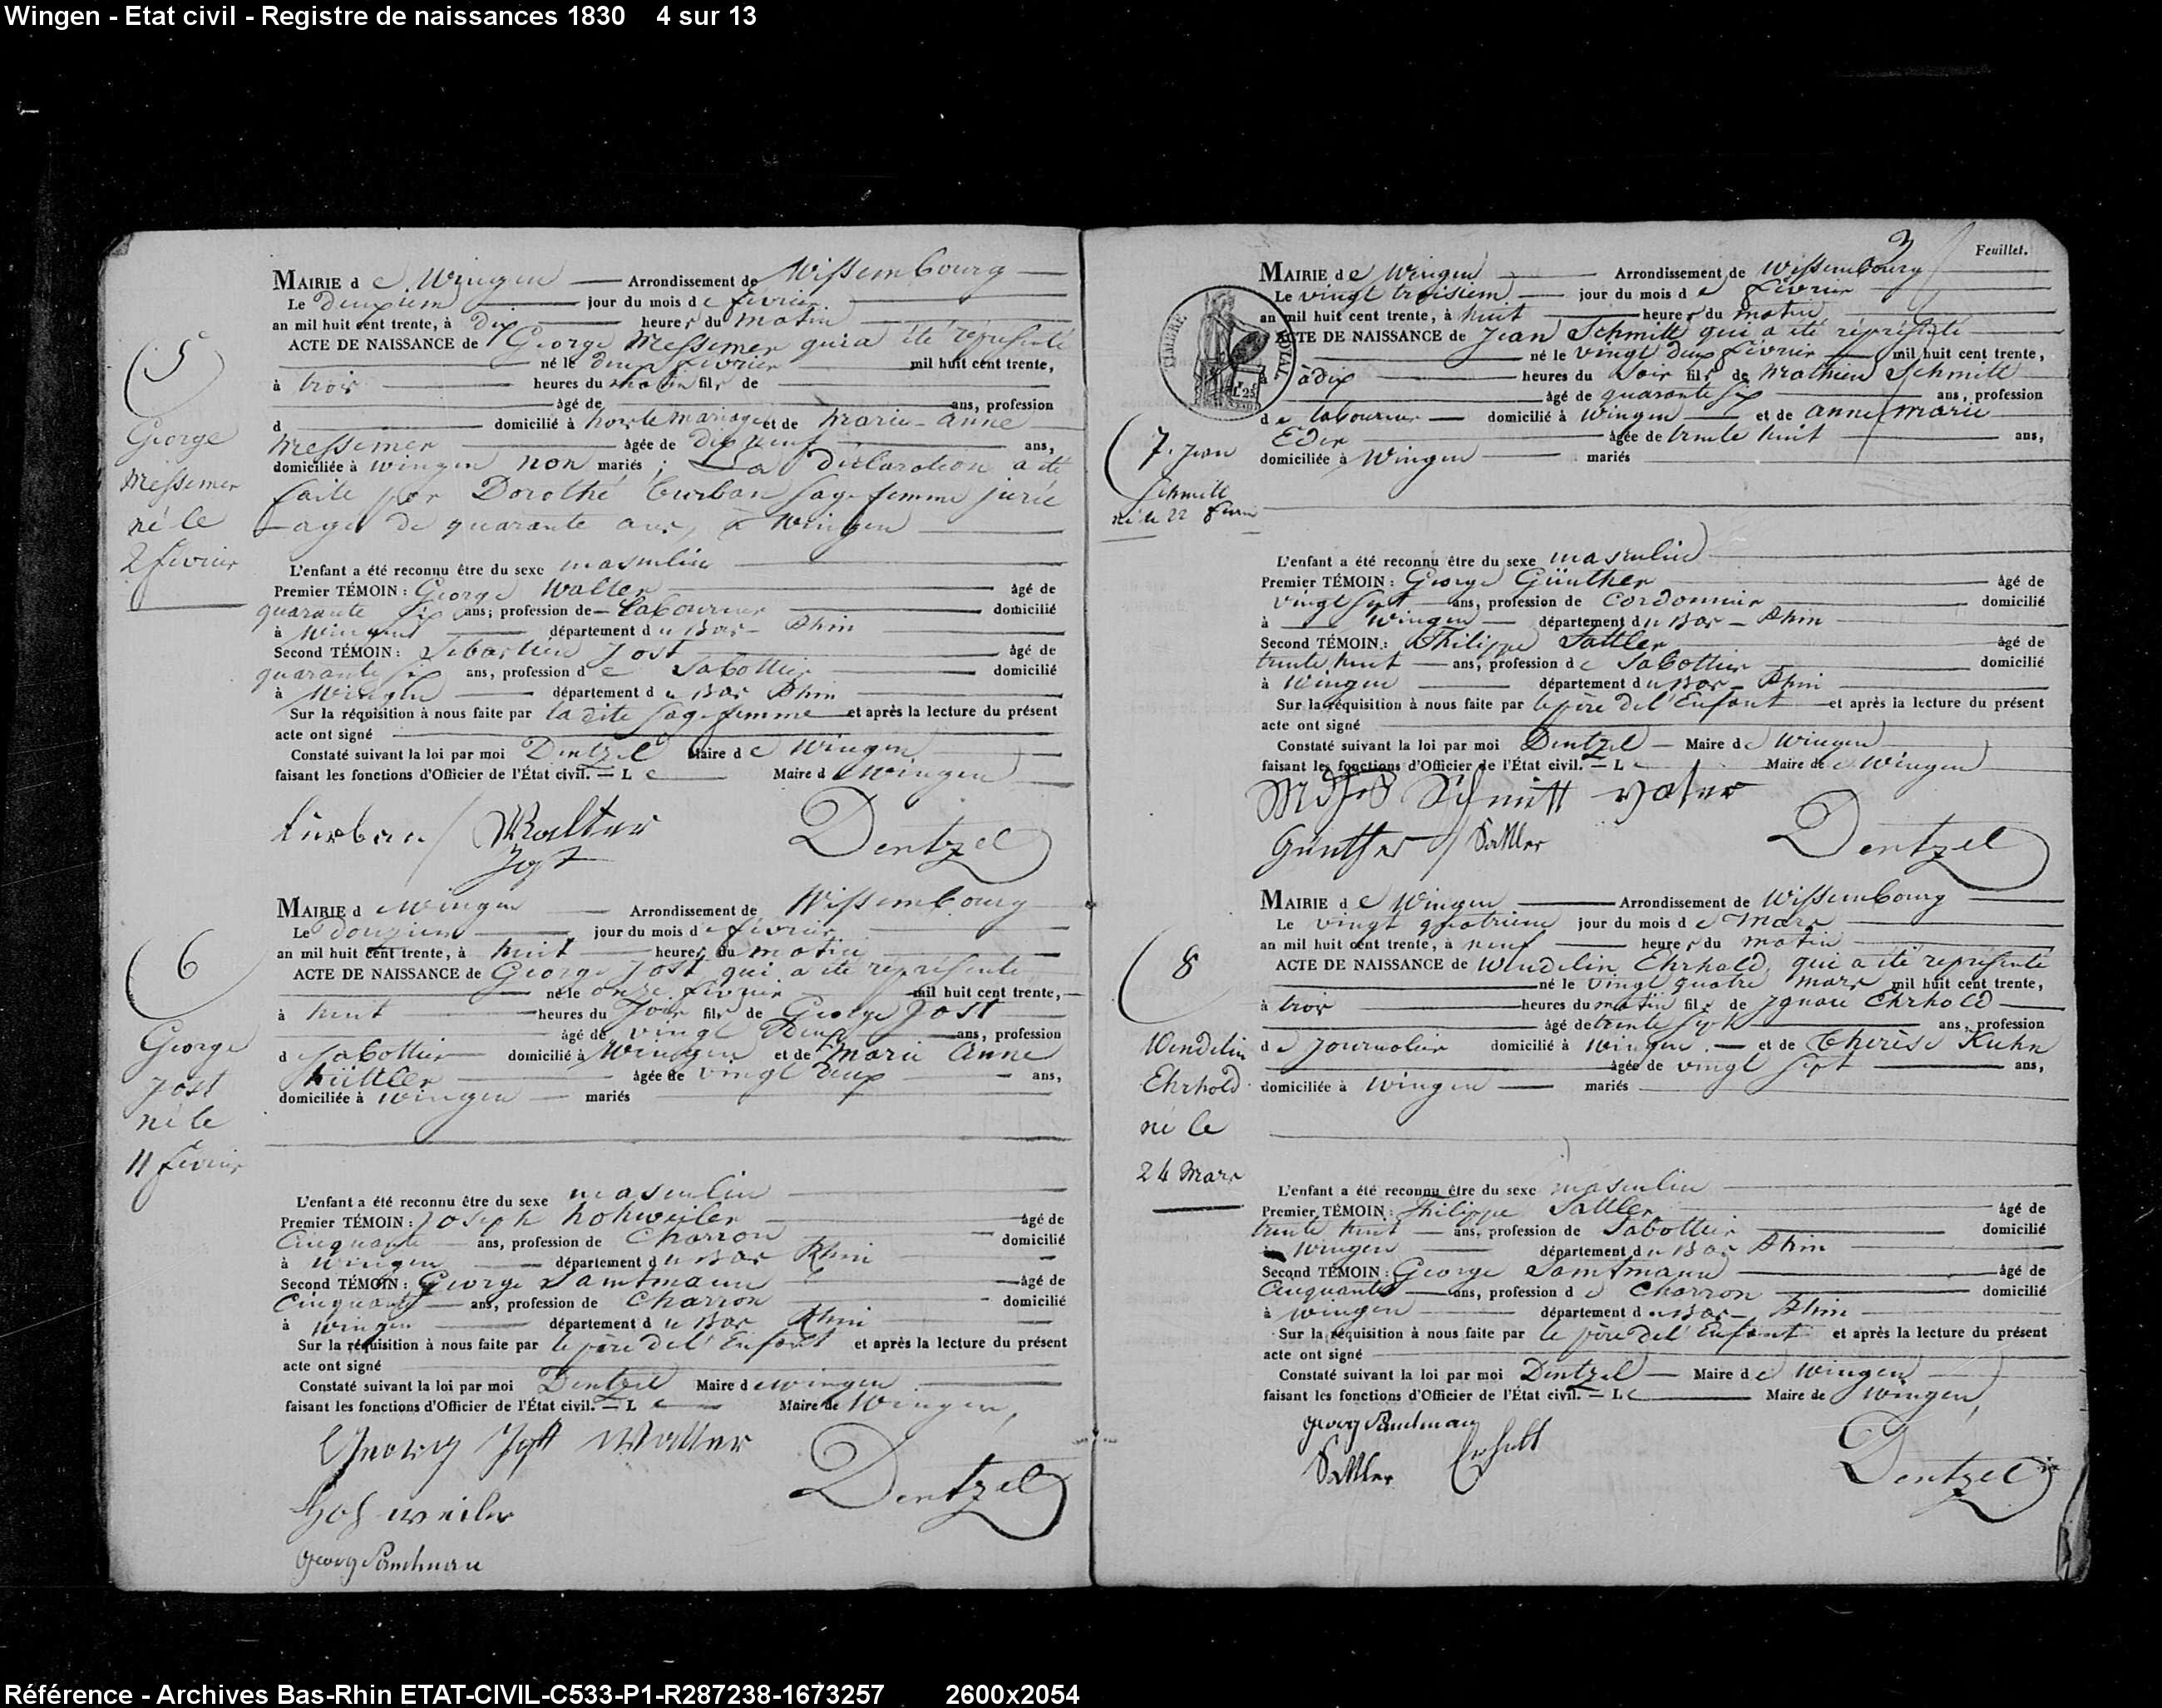 Wingen - Etat civil - Registre de naissances 1830 4 sur 13
MAIRIE de Wingen Arrondissement de Wissembourg
Le deuxiem jour du mois de fevrier
an mil huit cent trente, à dix heures du matin
ACTE DE NAISSANCE de George Messemer qui a été représenté
né le deux fevrier mil huit cent trente,
à trois heures du matin fils de
âgé de ans, profession
d domicilié à hors le mariage et de Marie-Anne
Messemer âgée de dix neuf ans,
domiciliée à Wingen non mariés; La déclaration a été
faite par Dorothé Curban sage femme jurée
age de quarante ans, à Wingen
5
George
Messemer
né le
2 fevrier
L'enfant a été reconnu être du sexe masculin
Premier TÉMOIN : George Walter âgé de
quarante six ans; profession de Laboureur domicilié
à Wingen département du Bas-Rhin
Second TÉMOIN : Sebastien Jost âgé de
quarante six ans, profession de Sabottier domicilié
à Wingen département du Bas Rhin
Sur la réquisition à nous faite par la dite sage femme et après la lecture du présent
acte ont signé
Constaté suivant la loi par moi Dentzel Maire de Wingen
faisant les fonctions d'Officier de l'État civil. — Le Maire de Wingen
Curban Walter Dentzel
Jost
MAIRIE de Wingen Arrondissement de Wissembourg
Le douziem jour du mois de fevrier
an mil huit cent trente, à huit heures du matin
ACTE DE NAISSANCE de George Jost qui a été représenté
né le onze fevrier mil huit cent trente,
à huit heures du Soir fils de George Jost
âgé de vingt Deux ans, profession
de Sabottier domicilié à Wingen et de Marie Anne
âgée de vingt deux ans,
domiciliée à Wingen mariés
6
George
Jost
né le
11 fevrier
L'enfant a été reconnu être du sexe masculin
Premier TÉMOIN : Joseph hohweiler âgé de
Cinquante ans, profession de Charron domicilié
à Wingen département du Bas Rhin
Second TÉMOIN : George Samtmann âgé de
Cinquante ans, profession de Charron domicilié
à Wingen département du Bas Rhin
Sur la réquisition à nous faite par le père de l'Enfant et après la lecture du présent
acte ont signé
Constaté suivant la loi par moi Dentzel Maire de Wingen
faisant les fonctions d'Officier de l'État civil. — Le Maire de Wingen,
Georg Jost Dentzel
Hohweiler
Georg
3 Feuillet.
MAIRIE de Wingen Arrondissement de Wissembourg
Le vingt troisiem jour du mois de fevrier
an mil huit cent trente, à huit heures du matin
ACTE DE NAISSANCE de Jean Schmitt qui a été représenté
né le vingt deux fevrier mil huit cent trente,
à à dix heures du Soir fils de Mathieu Schmitt
âgé de quarante six ans, profession
de laboureur domicilié à Wingen et de Anne Marie
Eder âgée de trente huit ans,
domiciliée à Wingen mariés
TIMBRE ROYAL
7. Jean
Schmitt
né le 22 fevrier
L'enfant a été reconnu être du sexe masculin
Premier TÉMOIN : George Günther âgé de
vingt sept ans, profession de Cordonnier domicilié
à Wingen département du Bas-Rhin
Second TÉMOIN : Philippe Sattler âgé de
trente huit ans, profession de Sabottier domicilié
à Wingen département du Bas-Rhin
Sur la réquisition à nous faite par le père de l'Enfant et après la lecture du présent
acte ont signé
Constaté suivant la loi par moi Dentzel Maire de Wingen
faisant les fonctions d'Officier de l'État civil. — Le Maire de Wingen
Schmitt Vater
Günther Sattler Dentzel
MAIRIE de Wingen Arrondissement de Wissembourg
Le vingt quatrieme jour du mois de Mars
an mil huit cent trente, à neuf heures du matin
ACTE DE NAISSANCE de Wendelin Ehrhold, qui a été représenté
né le vingt quatre mars mil huit cent trente,
à trois heures du matin fils de Ignace Ehrhold
âgé de trente sept ans, profession
de Journalier domicilié à Wingen et de Therèse Kuhn
âgée de vingt sept ans,
domiciliée à Wingen mariés
8
Wendelin
Ehrhold
né le
24 Mars
L'enfant a été reconnu être du sexe masculin
Premier TÉMOIN : Philippe Sattler âgé de
trente huit ans, profession de Sabottier domicilié
à Wingen département du Bas Rhin
Second TÉMOIN : George Samtmann âgé de
Cinquante ans, profession de Charron domicilié
à Wingen département du Bas-Rhin
Sur la réquisition à nous faite par le père de l'Enfant et après la lecture du présent
acte ont signé
Constaté suivant la loi par moi Dentzel Maire de Wingen
faisant les fonctions d'Officier de l'État civil. — Le Maire de Wingen,
Georg
Sattler Dentzel
Référence - Archives Bas-Rhin ETAT-CIVIL-C533-P1-R287238-1673257 2600x2054